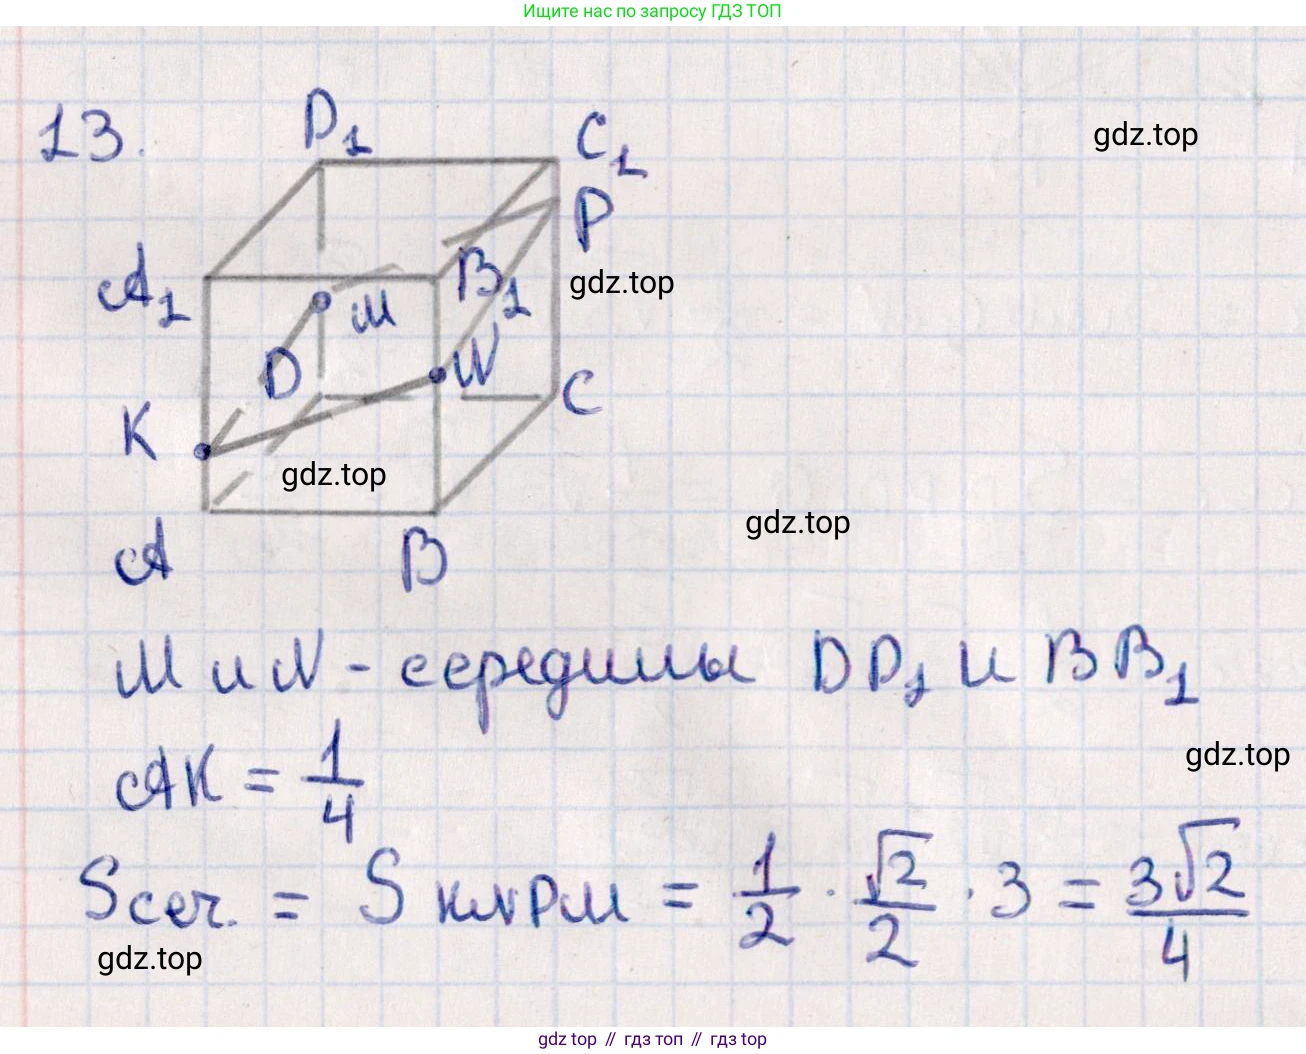 Ищите нас по запросу ГДЗ ТОП
13.
D₁
C₁
gdz.top
P
A₁
B₁
gdz.top
M
D
N
C
K
gdz.top
gdz.top
A
B
M и N - середины DD₁ и BB₁
gdz.top
AK = 1/4
Sсеч. = S KNPM = 1/2 · √2/2 · 3 = 3√2/4
gdz.top
gdz top // гдз топ // gdz top